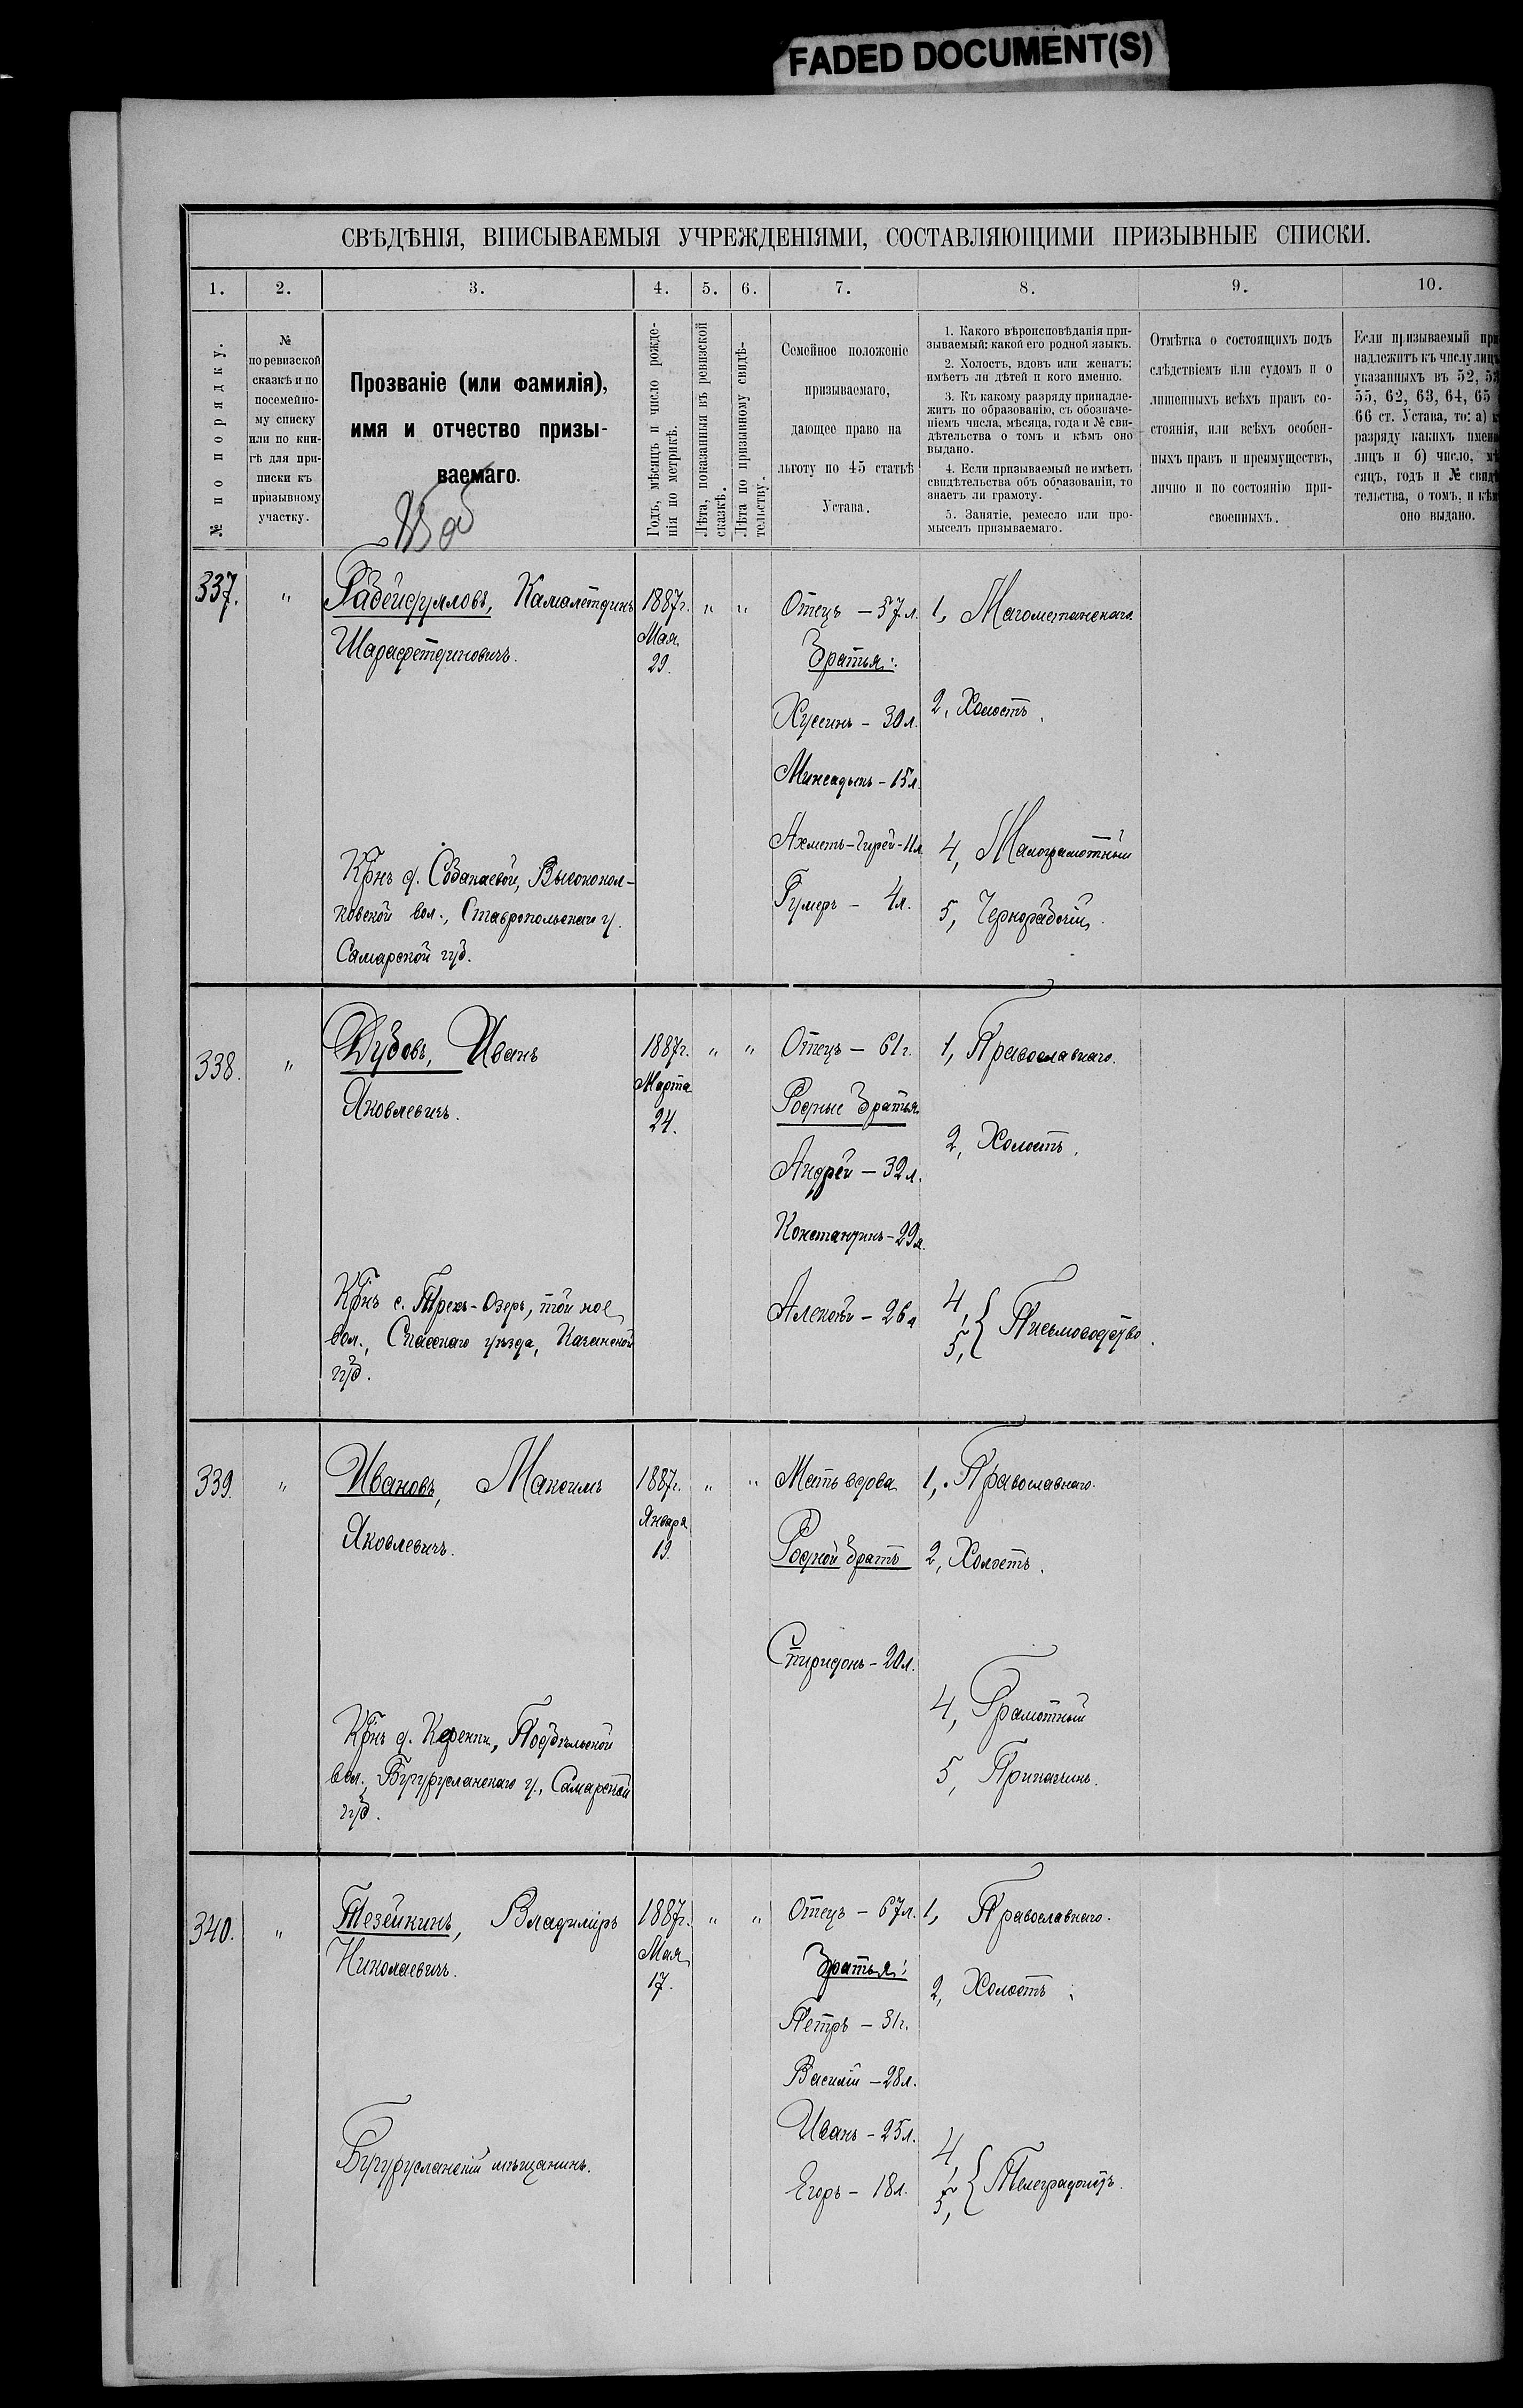 FADED DOCUMENT(S)
СВѢДѢНІЯ, ВПИСЫВАЕМЫЯ УЧРЕЖДЕНІЯМИ, СОСТАВЛЯЮЩИМИ ПРИЗЫВНЫЕ СПИСКИ.
1. 2. 3. 4. 5. 6. 7. 8. 9. 10.
№ по порядку.
№
по ревизской
сказкѣ и по
посемейно-
му списку
или по кни-
гѣ для при-
писки къ
призывному
участку.
Прозваніе (или фамилія),
имя и отчество призы-
ваемаго.
Годъ, мѣсяцъ и число рожде-
нія по метрикѣ.
Лѣта, показанныя въ ревизской
сказкѣ.
Лѣта по призывному свидѣ-
тельству.
Семейное положеніе
призываемаго,
дающее право на
льготу по 45 статьѣ
Устава.
1. Какого вѣроисповѣданія при-
зываемый: какой его родной языкъ.
2. Холостъ, вдовъ или женатъ:
имѣетъ ли дѣтей и кого именно.
3. Къ какому разряду принадле-
житъ по образованію, съ обозначе-
ніемъ числа, мѣсяца, года и № сви-
дѣтельства о томъ и кѣмъ оно
выдано.
4. Если призываемый не имѣетъ
свидѣтельства объ образованіи, то
знаетъ ли грамоту.
5. Занятіе, ремесло или про-
мыселъ призываемаго.
Отмѣтка о состоящихъ подъ
слѣдствіемъ или судомъ и о
лишенныхъ всѣхъ правъ со-
стоянія, или всѣхъ особен-
ныхъ правъ и преимуществъ,
лично и по состоянію при-
своенныхъ.
Если призываемый при
надлежитъ къ числу лицъ
указанныхъ въ 52, 53
55, 62, 63, 64, 65
66 ст. Устава, то: а) к
разряду какихъ имен
лицъ и б) число, мѣ
сяцъ, годъ и № свидѣ
тельства, о томъ, и кѣм
оно выдано.
337. "
Камалетдинъ
Шарафетдиновичъ.
1887г. " "
Мая
29.
Отецъ – 57 л.
Братья:
Хусеинъ – 30 л.
– 15 л.
Ахметъ-Гирей – 11 л.
Гумеръ – 4 л.
1, Магометанскаго.
2, Холостъ.
4, Малограмотный
5, Чернорабочій.
Крнъ д.
вол., Ставропольскаго у.
Самарской губ.
338. "
Дубовъ, Иванъ
Яковлевичъ.
1887г. " "
Марта
24.
Отецъ – 61 г.
Родные братья
Андрей – 32 л.
Константинъ – 29 л.
Алексѣй – 26 л
1, Православнаго.
2, Холостъ.
4,
5, } Письмоводство.
Крнъ с. Трехъ-Озеръ, той же
вол., Спасскаго уѣзда, Казанской
губ.
339. "
Ивановъ, Максимъ
Яковлевичъ.
1887г. " "
Января
19.
Мать вдова
Родной братъ
Спиридонъ – 20 л.
1, Православнаго.
2, Холостъ.
4, Грамотный
5, Приказчикъ.
Крнъ д. Подбѣльской
вол., Бугурусланскаго у., Самарской
губ.
340. "
Тезейкинъ, Владиміръ
Николаевичъ.
1887г. " "
Мая
17.
Отецъ – 67 л.
Братья:
Петръ – 31 г.
Василій – 28 л.
Иванъ – 25 л.
Егоръ – 18 л.
1, Православнаго.
2, Холостъ
4,
5, { Телеграфистъ.
Бугурусланскій мѣщанинъ.